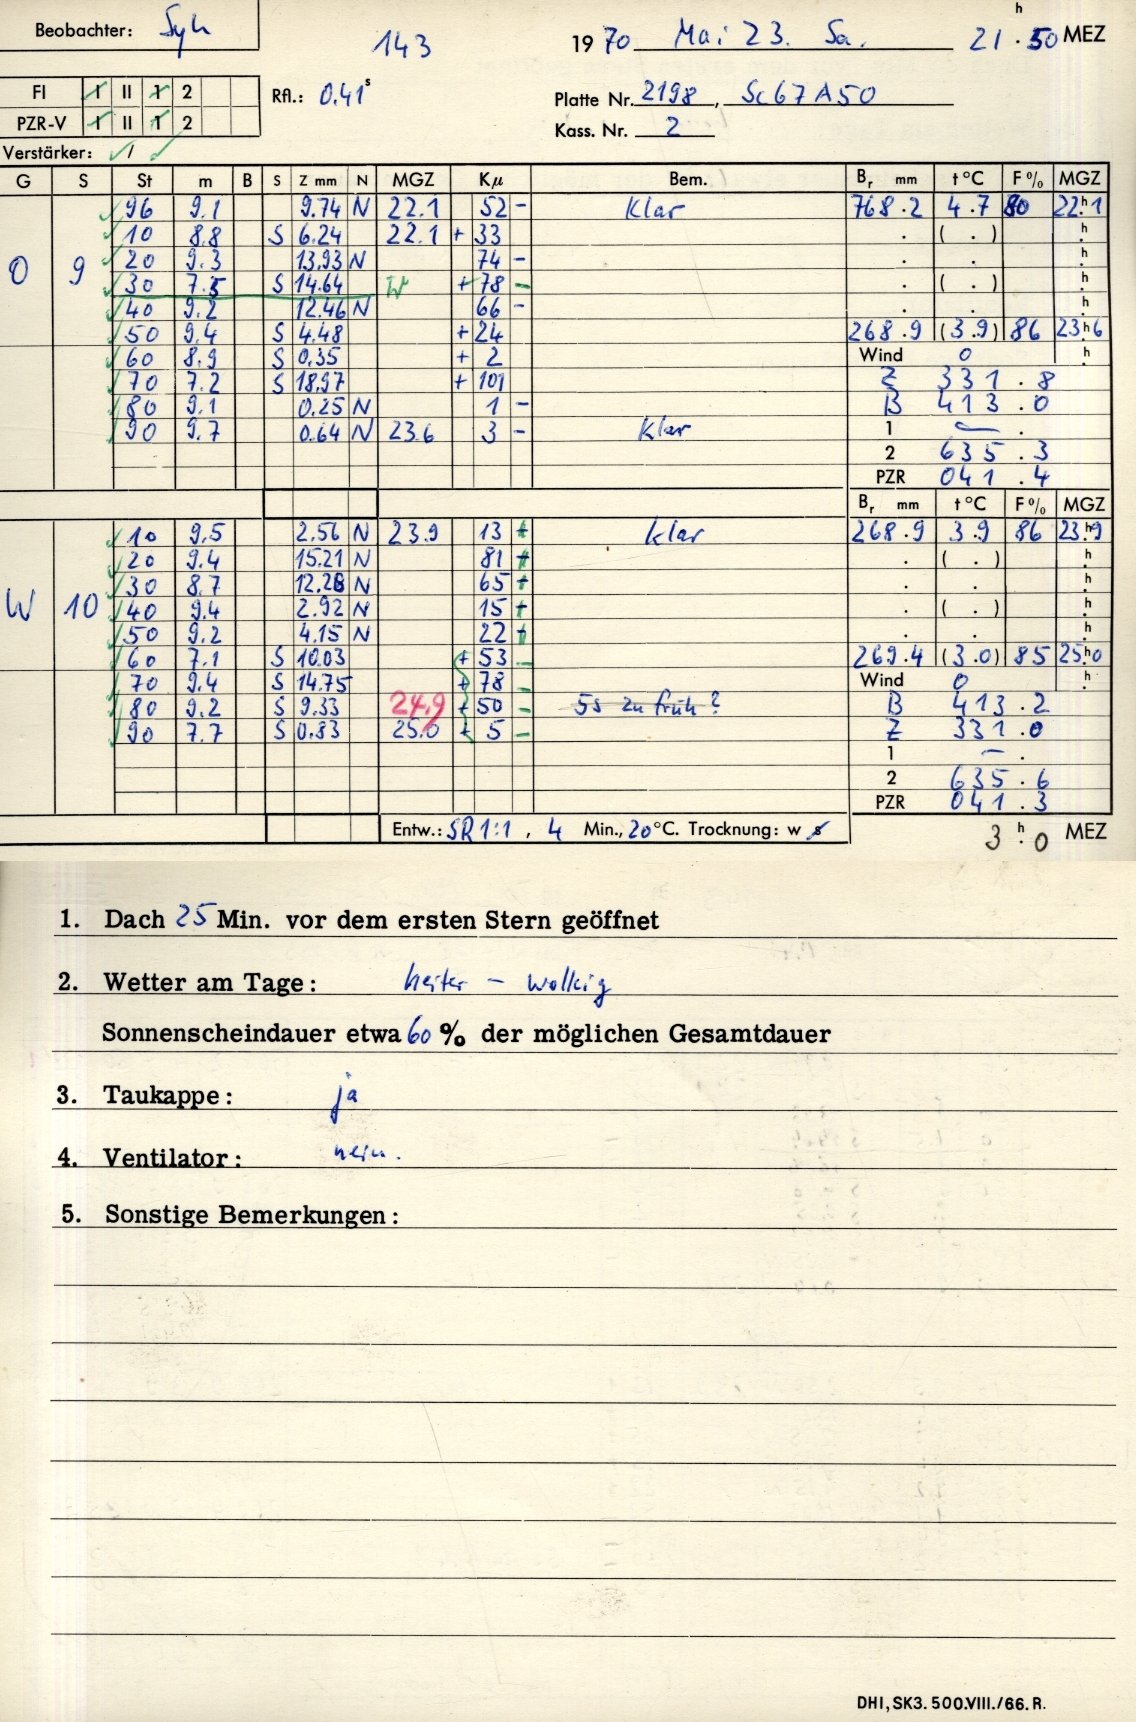 Beobachter: Syh 143 1970 Mai 23. Sa. 21 h . 50 MEZ
FI I II 1 2 Rfl.: 0.41 s Platte Nr. 2198, Sc67A50
PZR-V I II 1 2 Kass. Nr. 2
Verstärker: ✓ / ✓
G S St m B S Z mm N MGZ Kµ Bem. Br mm t °C F % MGZ
O 9
✓ 96 9.1 9.74 N 22.1 52 - Klar 768.2 4.7 80 22 h 1
✓ 10 8.8 S 6.24 22.1 + 33 . ( . ) h
✓ 20 9.3 13.93 N 74 - . . h
✓ 30 7.5 S 14.64 W + 78 - . ( . ) h
✓ 40 9.2 12.46 N 66 - . . h
✓ 50 9.4 S 4.48 + 24 268.9 (3.9) 86 23 h 6
✓ 60 8.9 S 0.35 + 2 Wind 0 h
✓ 70 7.2 S 18.97 + 101 Z 331.8
✓ 80 9.1 0.25 N 1 - B 413.0
✓ 90 9.7 0.64 N 23.6 3 - Klar 1 — .
2 635.3
PZR 041.4
Br mm t °C F % MGZ
W 10
✓ 10 9.5 2.56 N 23.9 13 + Klar 268.9 3.9 86 23 h 9
✓ 20 9.4 15.21 N 81 + . ( . ) h
✓ 30 8.7 12.28 N 65 + . . h
✓ 40 9.4 2.92 N 15 + . ( . ) h
✓ 50 9.2 4.15 N 22 + . . h
✓ 60 7.1 S 10.03 + 53 - 269.4 (3.0) 85 25 h 0
✓ 70 9.4 S 14.75 + 78 - Wind 0 h
✓ 80 9.2 S 9.33 24.9 + 50 - 5s zu früh? B 413.2
✓ 90 7.7 S 0.83 25.0 + 5 - Z 331.0
1 — .
2 635.6
PZR 041.3
Entw.: SR 1:1, 4 Min., 20 °C. Trocknung: w s 3 h . 0 MEZ
1. Dach 25 Min. vor dem ersten Stern geöffnet
2. Wetter am Tage: heiter – wolkig
Sonnenscheindauer etwa 60 % der möglichen Gesamtdauer
3. Taukappe: ja
4. Ventilator: nein.
5. Sonstige Bemerkungen:
DHI, SK3. 500.VIII./66. R.